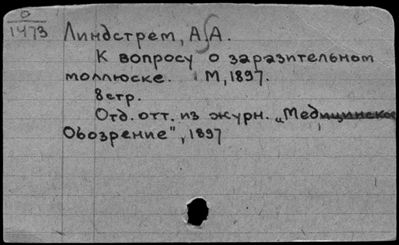 О
1473
Линдстрем, А.А.
К вопросу о заразительном
моллюске. М, 1897.
8стр.
Отд. отт. из журн. „Медицинское
Обозрение", 1897